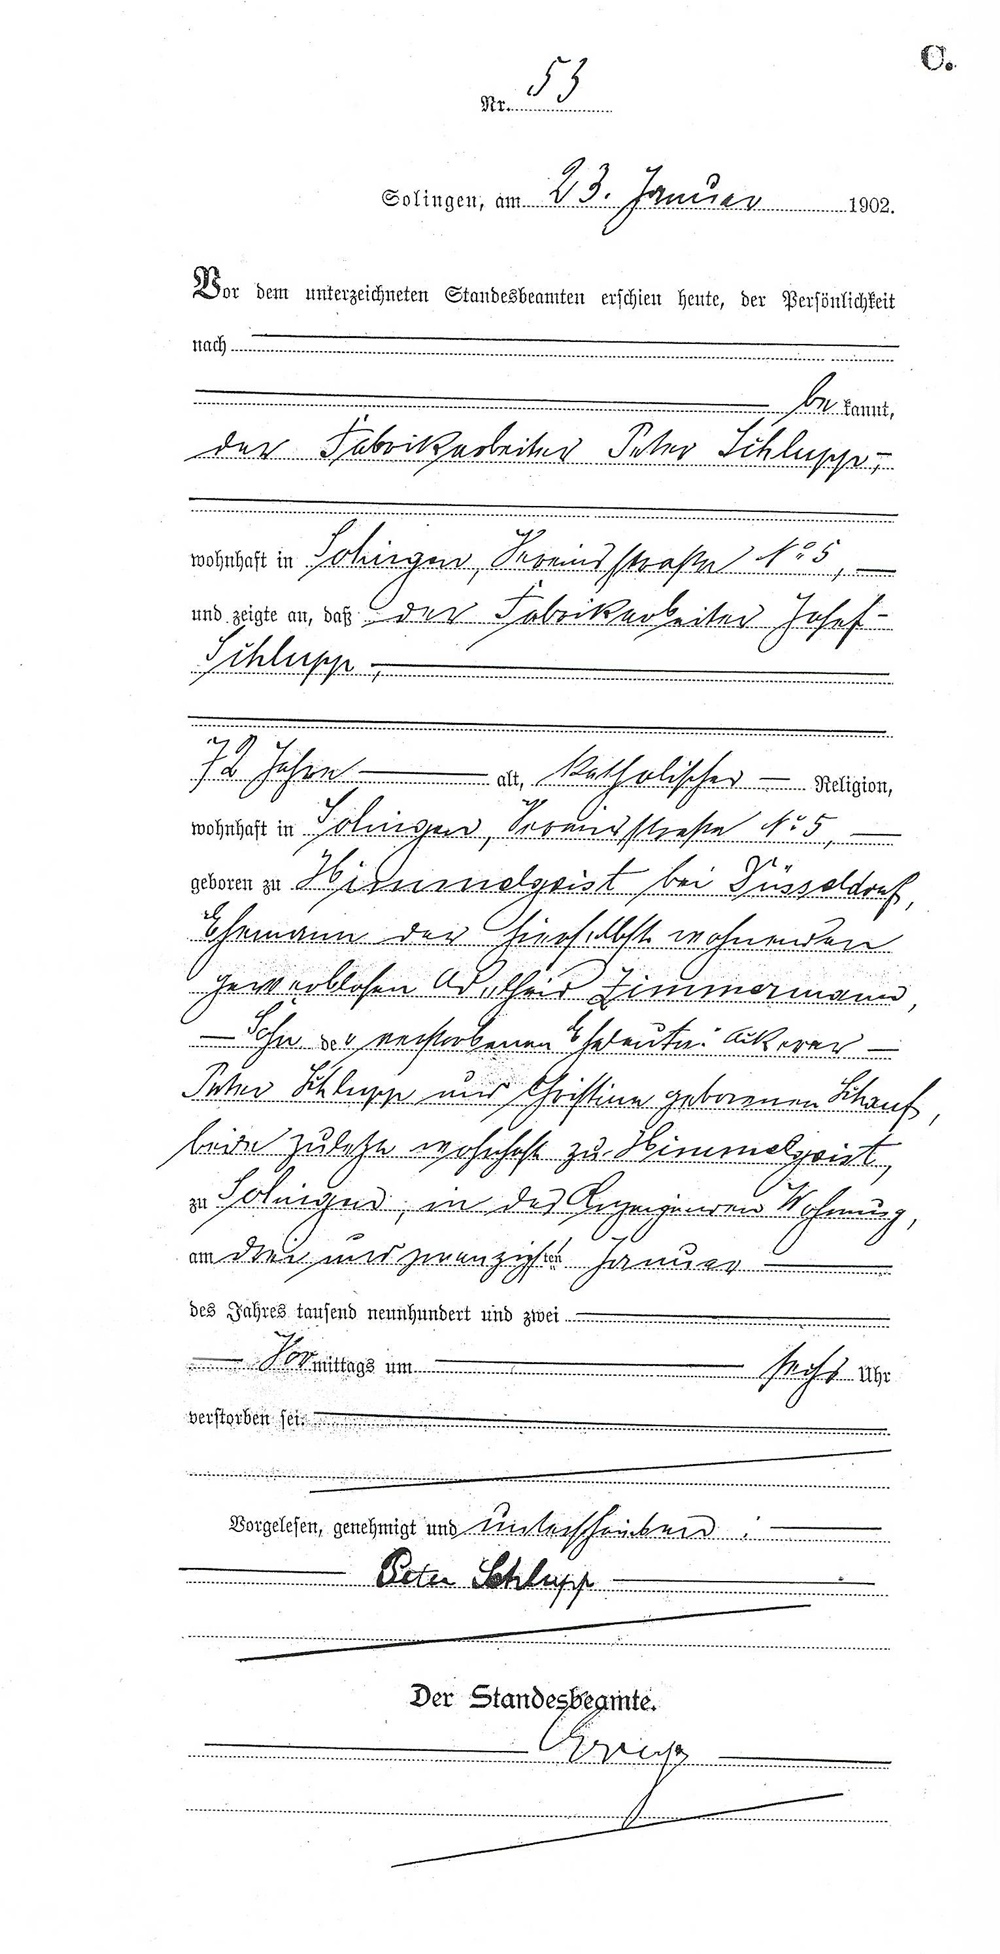 C.
Nr. 53
Solingen, am 23. Januar 1902.
Vor dem unterzeichneten Standesbeamten erschien heute, der Persönlichkeit
nach
be kannt,
der Fabrikarbeiter Peter Schlupp,
wohnhaft in Solingen, Vereinsstraße No 5,
und zeigte an, daß der Fabrikarbeiter Josef
Schlupp,
72 Jahre alt, katholischer Religion,
wohnhaft in Solingen, Vereinsstraße No 5,
geboren zu Himmelgeist bei Düsseldorf,
Ehemann der hierselbst wohnenden
gewerblosen Adelheid Zimmermann,
Sohn der verstorbenen Eheleute: Ackerer
Peter Schlupp und Christine geborenen Schauf,
beide zuletzt wohnhaft zu Himmelgeist,
zu Solingen, in des Anzeigenden Wohnung,
am drei und zwanzigsten Januar
des Jahres tausend neunhundert und zwei
Vor mittags um sechs Uhr
verstorben sei.
Vorgelesen, genehmigt und unterschrieben:
Peter Schlupp
Der Standesbeamte.